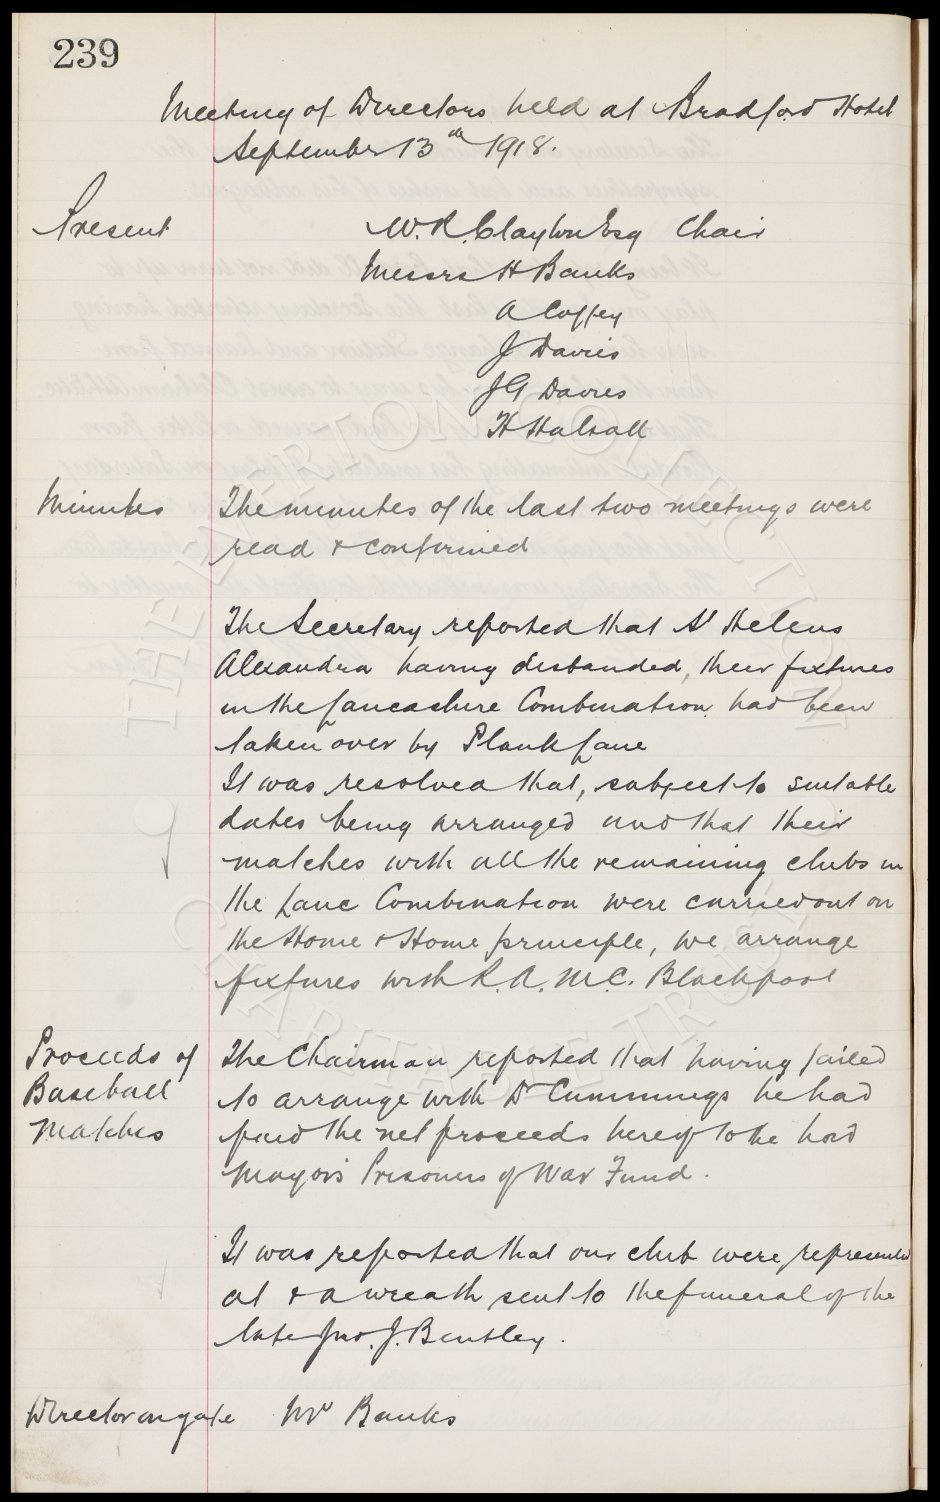 239
Meeting of Directors held at Bradford Hotel
September 13th 1918.
Present W. R. Clayton Esq Chair
Messrs H Banks
A Coffey
J Davies
J G Davies
H Halsall
Minutes The minutes of the last two meetings were
read & confirmed
The Secretary reported that St Helens
Alexandra having disbanded, their fixtures
in the Lancashire Combination had been
taken over by Plank Lane
It was resolved that, subject to suitable
dates being arranged and that their
matches with all the remaining clubs in
the Lanc Combination were carried out on
the Home & Home principle, we arrange
fixtures with R.A.M.C. Blackpool
Proceeds of The Chairman reported that having failed
Baseball to arrange with Dr Cummings he had
Matches paid the net proceeds hereof to the Lord
Mayor's Prisoners of War Fund.
It was reported that our club were represented
at & a wreath sent to the funeral of the
late Jno. J. Bentley.
Director on gate Mr Banks
THE EVERTON COLLECTION
CHARITABLE TRUST